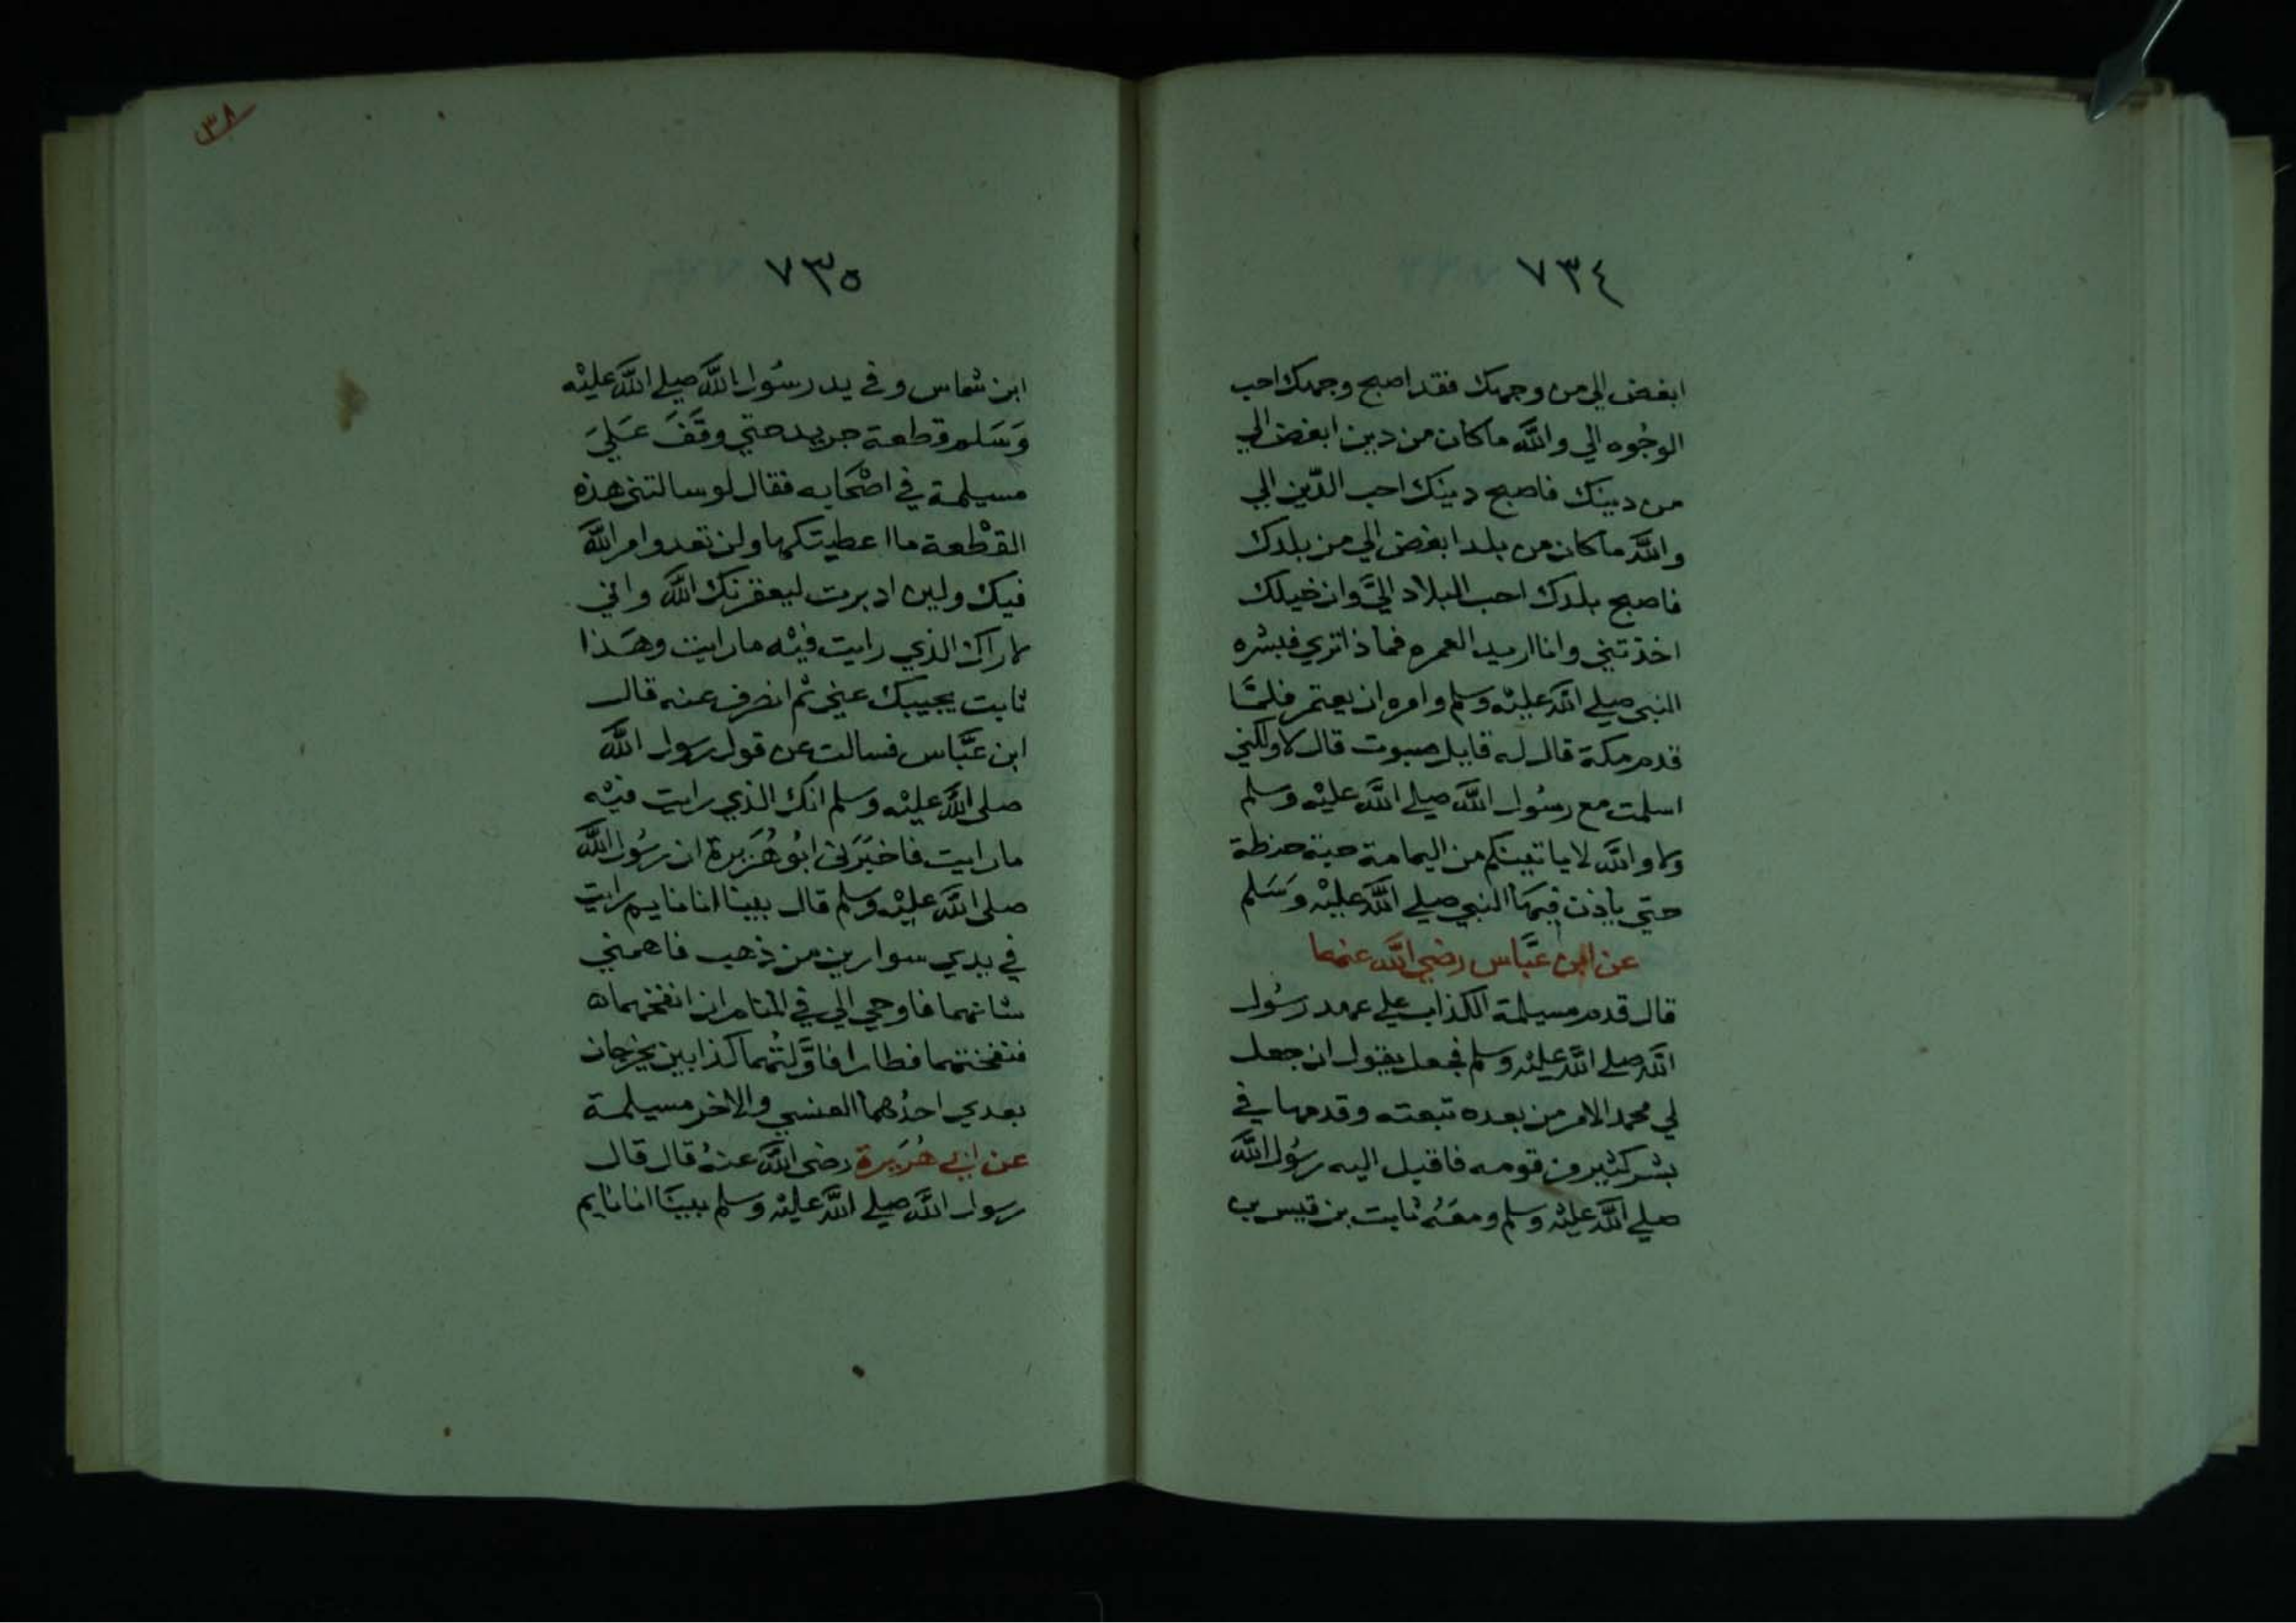 ٧٣٤
ابغض الي من وجهك فقد اصبح وجهك احب
الوجُوه الي والله ما كان من دين ابغض الي
من دينك فاصبح دينك احب الدّين الي
والله ما كان من بلد ابغض الي من بلدك
فاصبح بلدك احب البلاد اليَّ وان خيلك
اخذتني وانا اريد العمره فماذا تري فبشره
النبي صلي الله عليْه وسلم وامره ان يعتمر فلمَّا
قدم مكة قال له قايل صبوت قال لا ولكني
اسلمت مع رسُول الله صلي الله عليْه وسلم
ولا والله لا ياتينكم من اليمامة حبة حنطة
حتي ياذن فيهَا النبي صلي الله عليْه وسَلم
عن ابن عبَّاس رضي الله عنهما
قال قدم مسيلمة الكذاب علي عهد رسُول
الله صلي الله عليْه وسلم فجعل يقول ان جعل
لي محمد الامر من بعده تبعته وقدمها في
بشر كثير من قومه فاقبل اليه رسُول الله
صلي الله عليْه وسلم ومعَهُ ثابت بن قيس بن
٣٨
٧٣٥
ابن شماس وفي يد رسُول الله صلي الله عليْه
وَسَلم قطعة جريد حتي وقَفَ عَليَ
مسيلمة في اصْحَابه فقال لو سالتني هذه
القطْعة ما اعطيتكها ولن تعدو امر الله
فيك ولين ادبرت ليعقرنك الله واني
لاراك الذي رايت فيْه ما رايت وهَذا
ثابت يجيبك عني ثم انصرف عنه قال
ابن عبَّاس فسالت عن قول رسول الله
صلي الله عليْه وسلم انك الذي رايت فيْه
ما رايت فاخبَرَني ابُو هُرَيرة ان رسُول الله
صلي الله عليْه وسلم قال بينا انا نايم رايت
في يدي سوارين من ذهب فاهمني
شانهما فاوحي الي في المنام ان انفخهما
فنفختهما فطارا فاوَّلتُهما كذابين يخرجان
بعدي احدُهما العنسي والاخر مسيلمة
عن ابي هُرَيرة رضي الله عنهُ قال قال
رسول الله صلي الله عليْه وسلم بينَا انا نايم